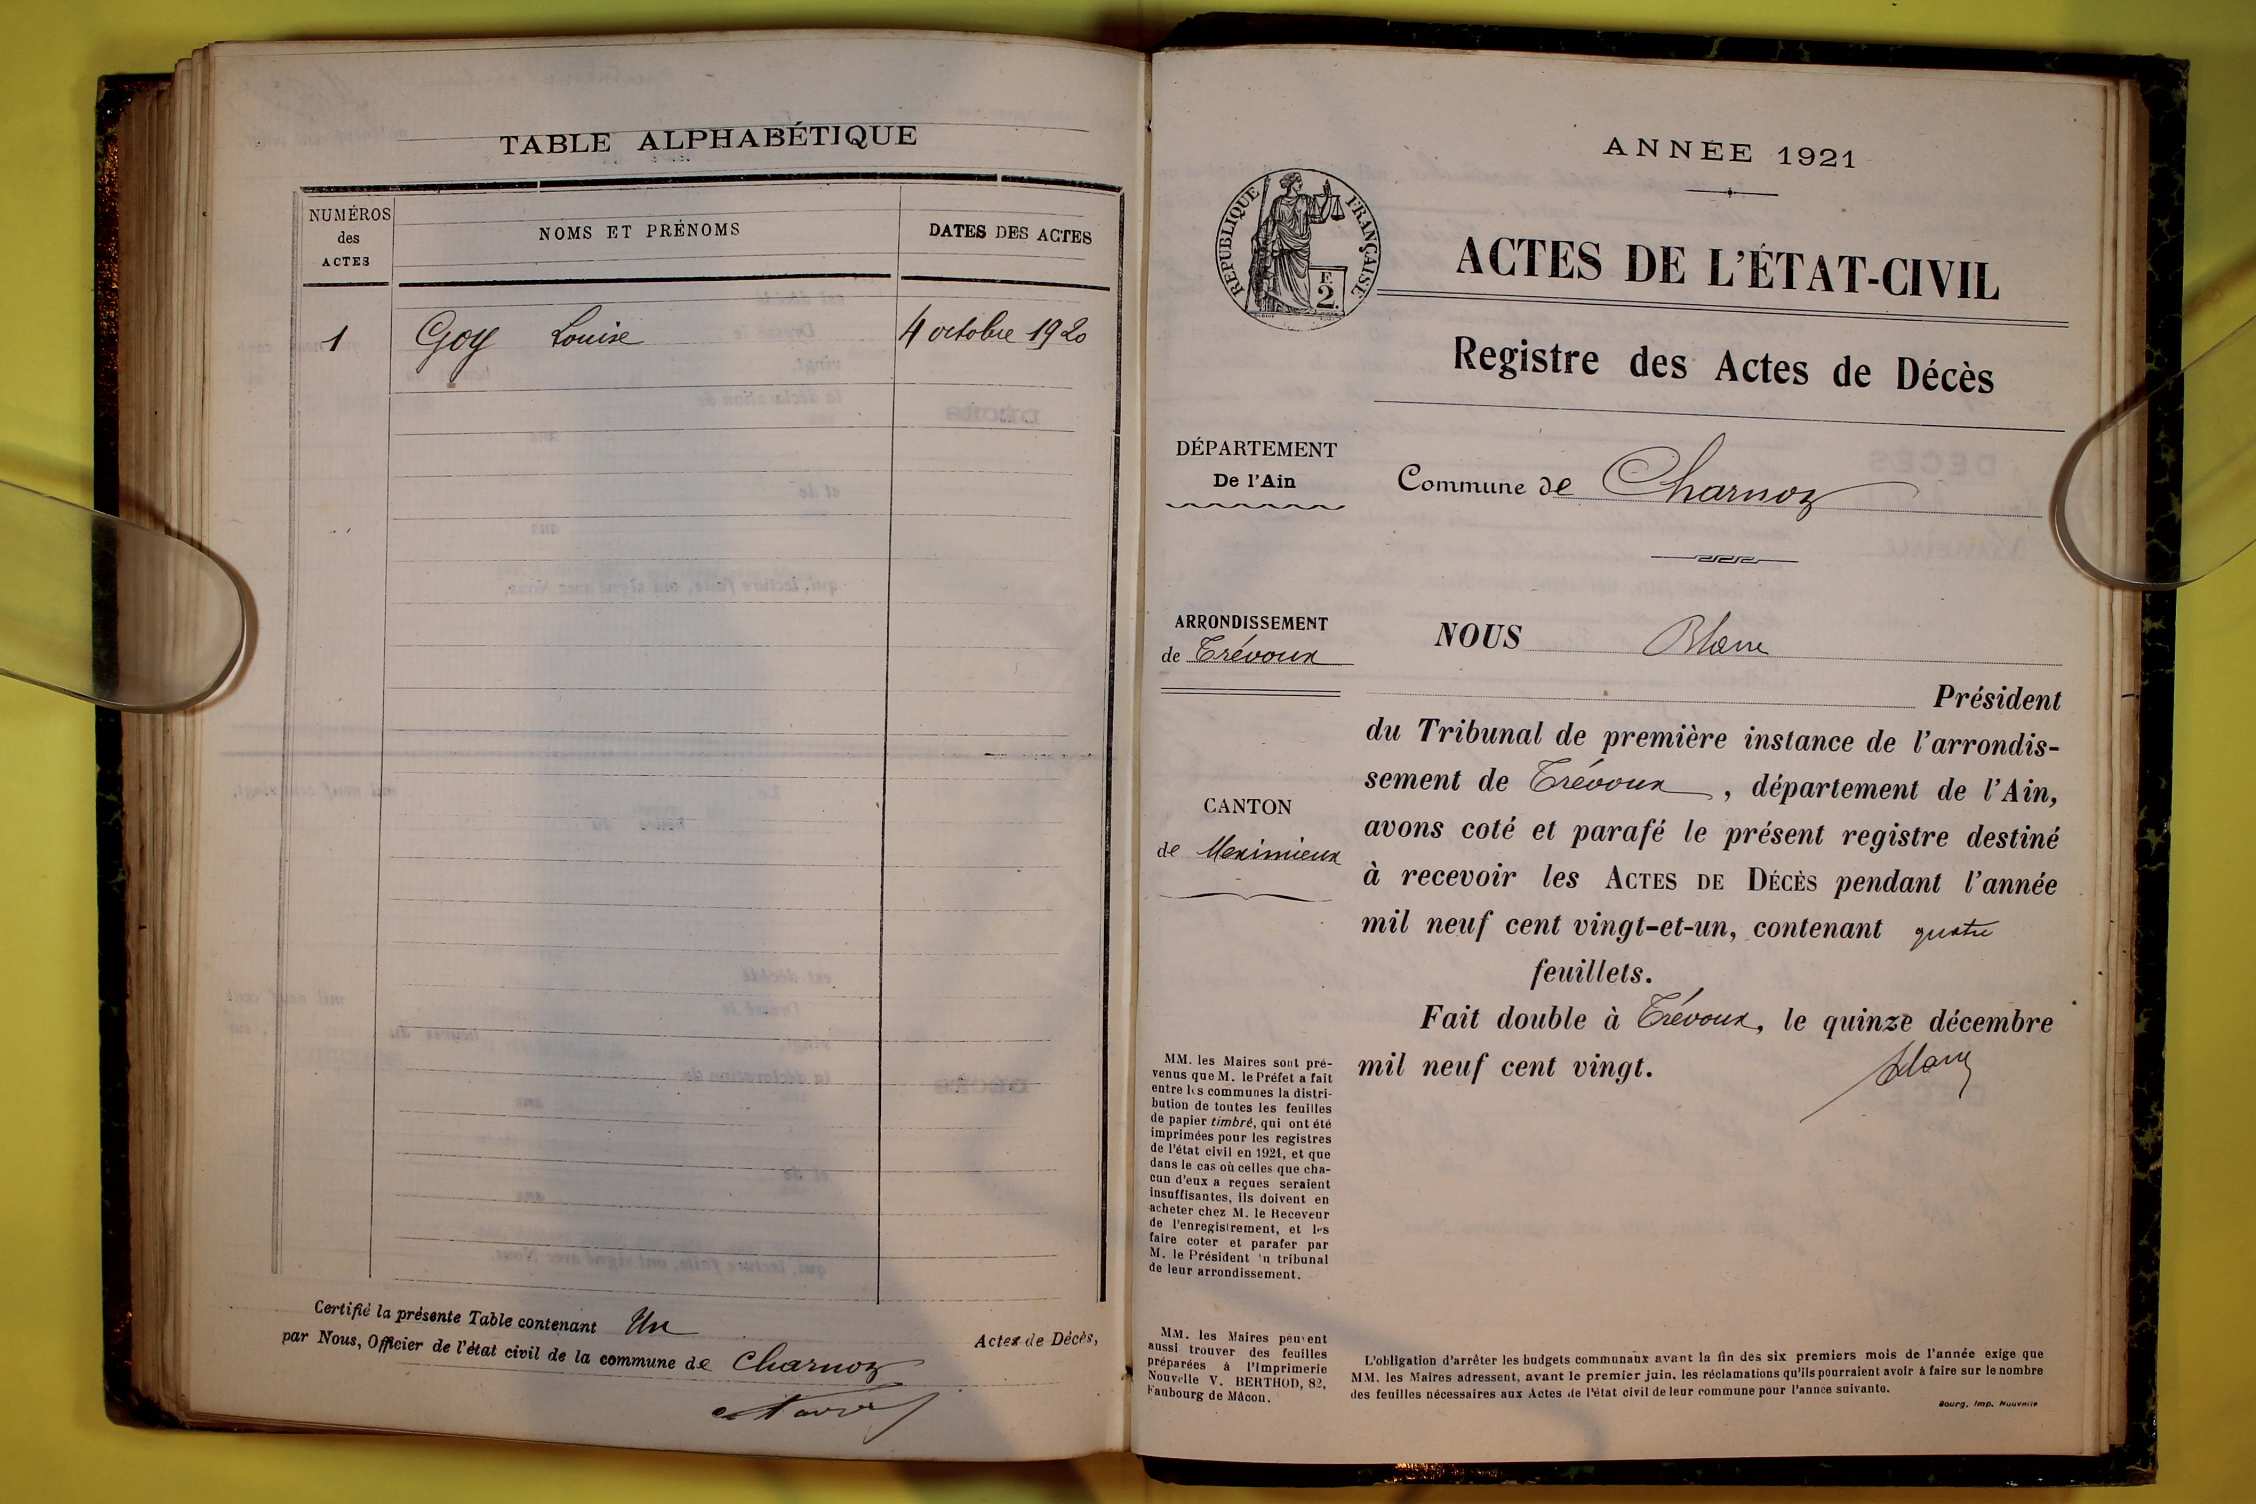 TABLE ALPHABÉTIQUE
NUMÉROS
des
ACTES
NOMS ET PRÉNOMS
DATES DES ACTES
1 Goy Louise 4 octobre 1920
Certifié la présente Table contenant Un Actes de Décès,
par Nous, Officier de l'état civil de la commune de Charnoz
ANNÉE 1921
RÉPUBLIQUE FRANÇAISE
F.
2.
ACTES DE L'ÉTAT-CIVIL
Registre des Actes de Décès
DÉPARTEMENT
De l'Ain
Commune de Charnoz
ARRONDISSEMENT
de Trévoux
CANTON
de Meximieux
NOUS Blanc
Président
du Tribunal de première instance de l'arrondis-
sement de Trévoux, département de l'Ain,
avons coté et parafé le présent registre destiné
à recevoir les ACTES DE DÉCÈS pendant l'année
mil neuf cent vingt-et-un, contenant quatre
feuillets.
Fait double à Trévoux, le quinze décembre
mil neuf cent vingt.
Blanc
MM. les Maires sont pré-
venus que M. le Préfet a fait
entre les communes la distri-
bution de toutes les feuilles
de papier timbré, qui ont été
imprimées pour les registres
de l'état civil en 1921, et que
dans le cas où celles que cha-
cun d'eux a reçues seraient
insuffisantes, ils doivent en
acheter chez M. le Receveur
de l'enregistrement, et les
faire coter et parafer par
M. le Président du tribunal
de leur arrondissement.
MM. les Maires peuvent
aussi trouver des feuilles
préparées à l'Imprimerie
Nouvelle V. BERTHOD, 82,
Faubourg de Mâcon.
L'obligation d'arrêter les budgets communaux avant la fin des six premiers mois de l'année exige que
MM. les Maires adressent, avant le premier juin, les réclamations qu'ils pourraient avoir à faire sur le nombre
des feuilles nécessaires aux Actes de l'état civil de leur commune pour l'année suivante.
Bourg, Imp. Nouvelle